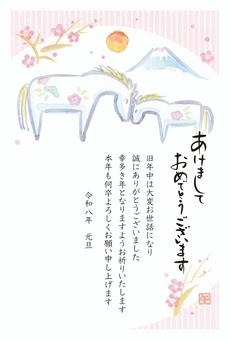 あけまして
おめでとうございます
旧年中は大変お世話になり
誠にありがとうございました
幸多き年となりますようお祈りいたします
本年も何卒よろしくお願い申し上げます
令和八年　元旦